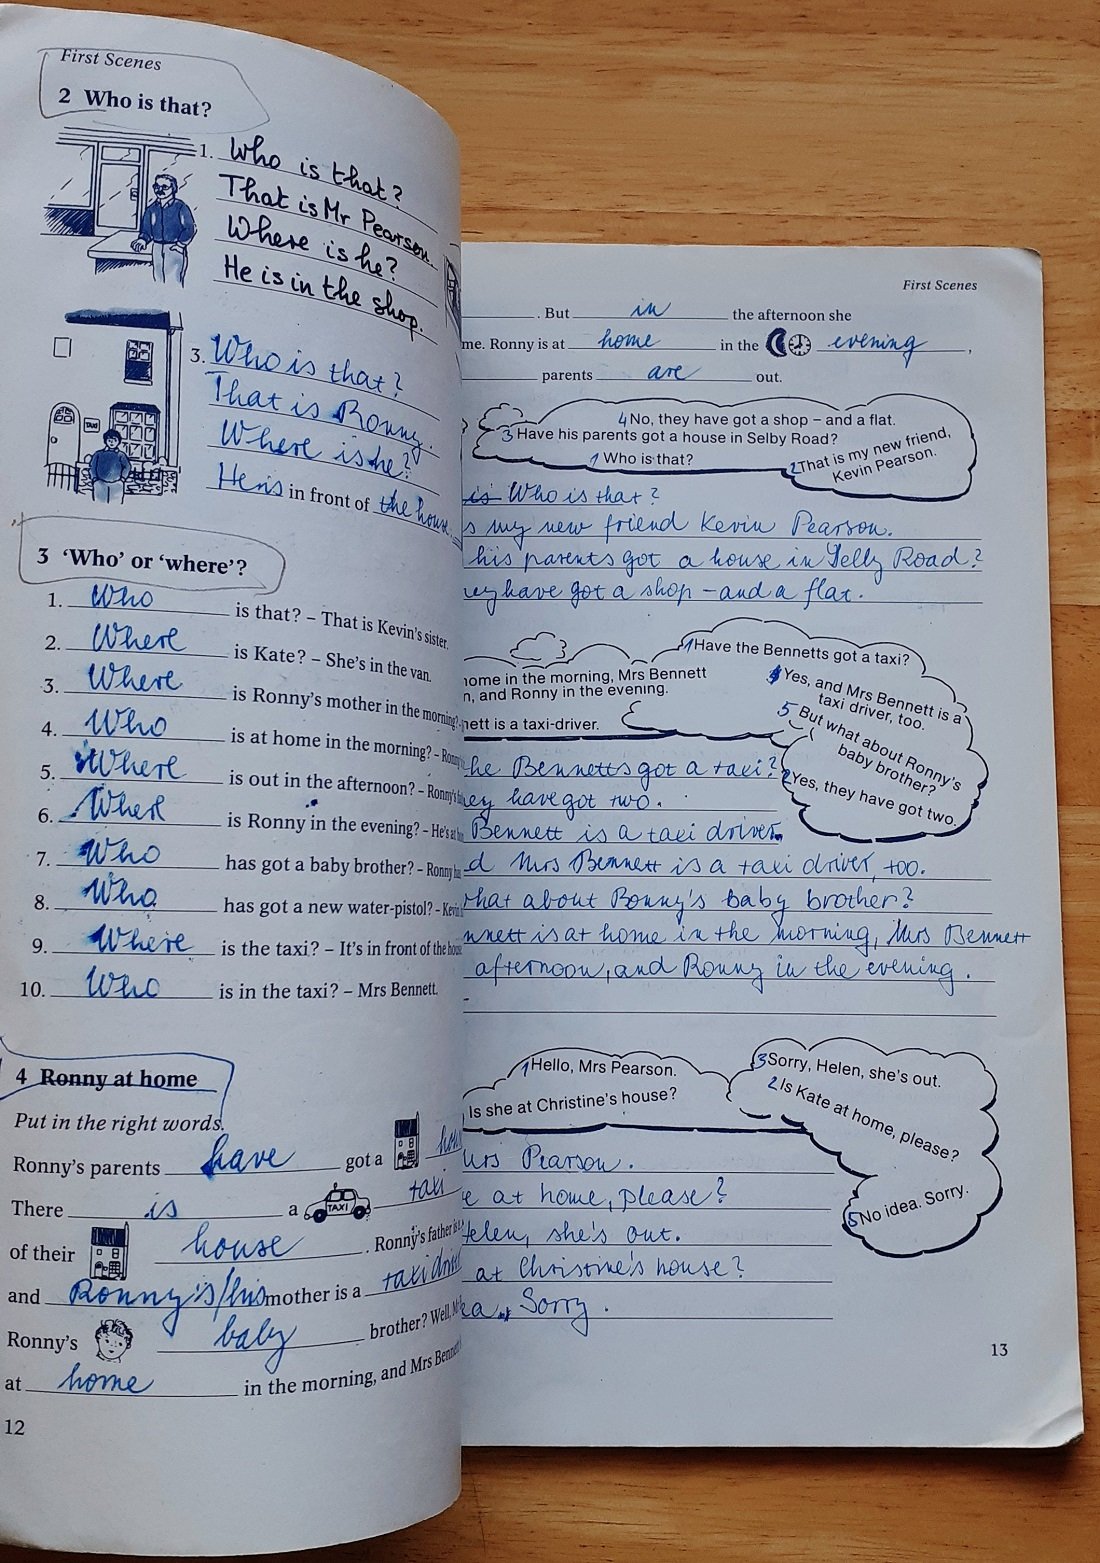 First Scenes
2 Who is that?
1. Who is that?
That is Mr Pearson.
Where is he?
He is in the shop.
3. Who is that?
That is Ronny.
Where is he?
He is in front of the house.
TAXI
3 ‘Who’ or ‘where’?
1. Who is that? – That is Kevin's sister.
2. Where is Kate? – She's in the van.
3. Where is Ronny's mother in the morning?
4. Who is at home in the morning? –
5. Where is out in the afternoon? – Ronny's
6. Where is Ronny in the evening? – He's at
7. Who has got a baby brother? – Ronny
8. Who has got a new water-pistol? –
9. Where is the taxi? – It's in front of the house
10. Who is in the taxi? – Mrs Bennett.
4 Ronny at home
Put in the right words.
Ronny's parents have got a
There is a TAXI taxi
of their house. Ronny's father is
and Ronny's/his mother is a taxi
Ronny's baby brother? Well,
at home in the morning, and Mrs
12
First Scenes
. But in the afternoon she
me. Ronny is at home in the evening,
parents are out.
4 No, they have got a shop – and a flat.
3 Have his parents got a house in Selby Road?
1 Who is that?
2 That is my new friend,
Kevin Pearson.
is Who is that?
s my new friend Kevin Pearson.
his parents got a house in Selly Road?
ey have got a shop – and a flat.
1 Have the Bennetts got a taxi?
ome in the morning, Mrs Bennett
n, and Ronny in the evening.
nett is a taxi-driver.
Yes, and Mrs Bennett is a
taxi driver, too.
5 But what about Ronny's
baby brother?
2 Yes, they have got two.
he Bennetts got a taxi?
ey have got two.
Bennett is a taxi driver.
d Mrs Bennett is a taxi driver, too.
hat about Ronny's baby brother?
nnett is at home in the morning, Mrs Bennett
afternoon, and Ronny in the evening.
1 Hello, Mrs Pearson.
Is she at Christine's house?
3 Sorry, Helen, she's out.
2 Is Kate at home, please?
5 No idea. Sorry.
Mrs Pearson.
e at home, please?
Helen, she's out.
at Christine's house?
ea. Sorry.
13